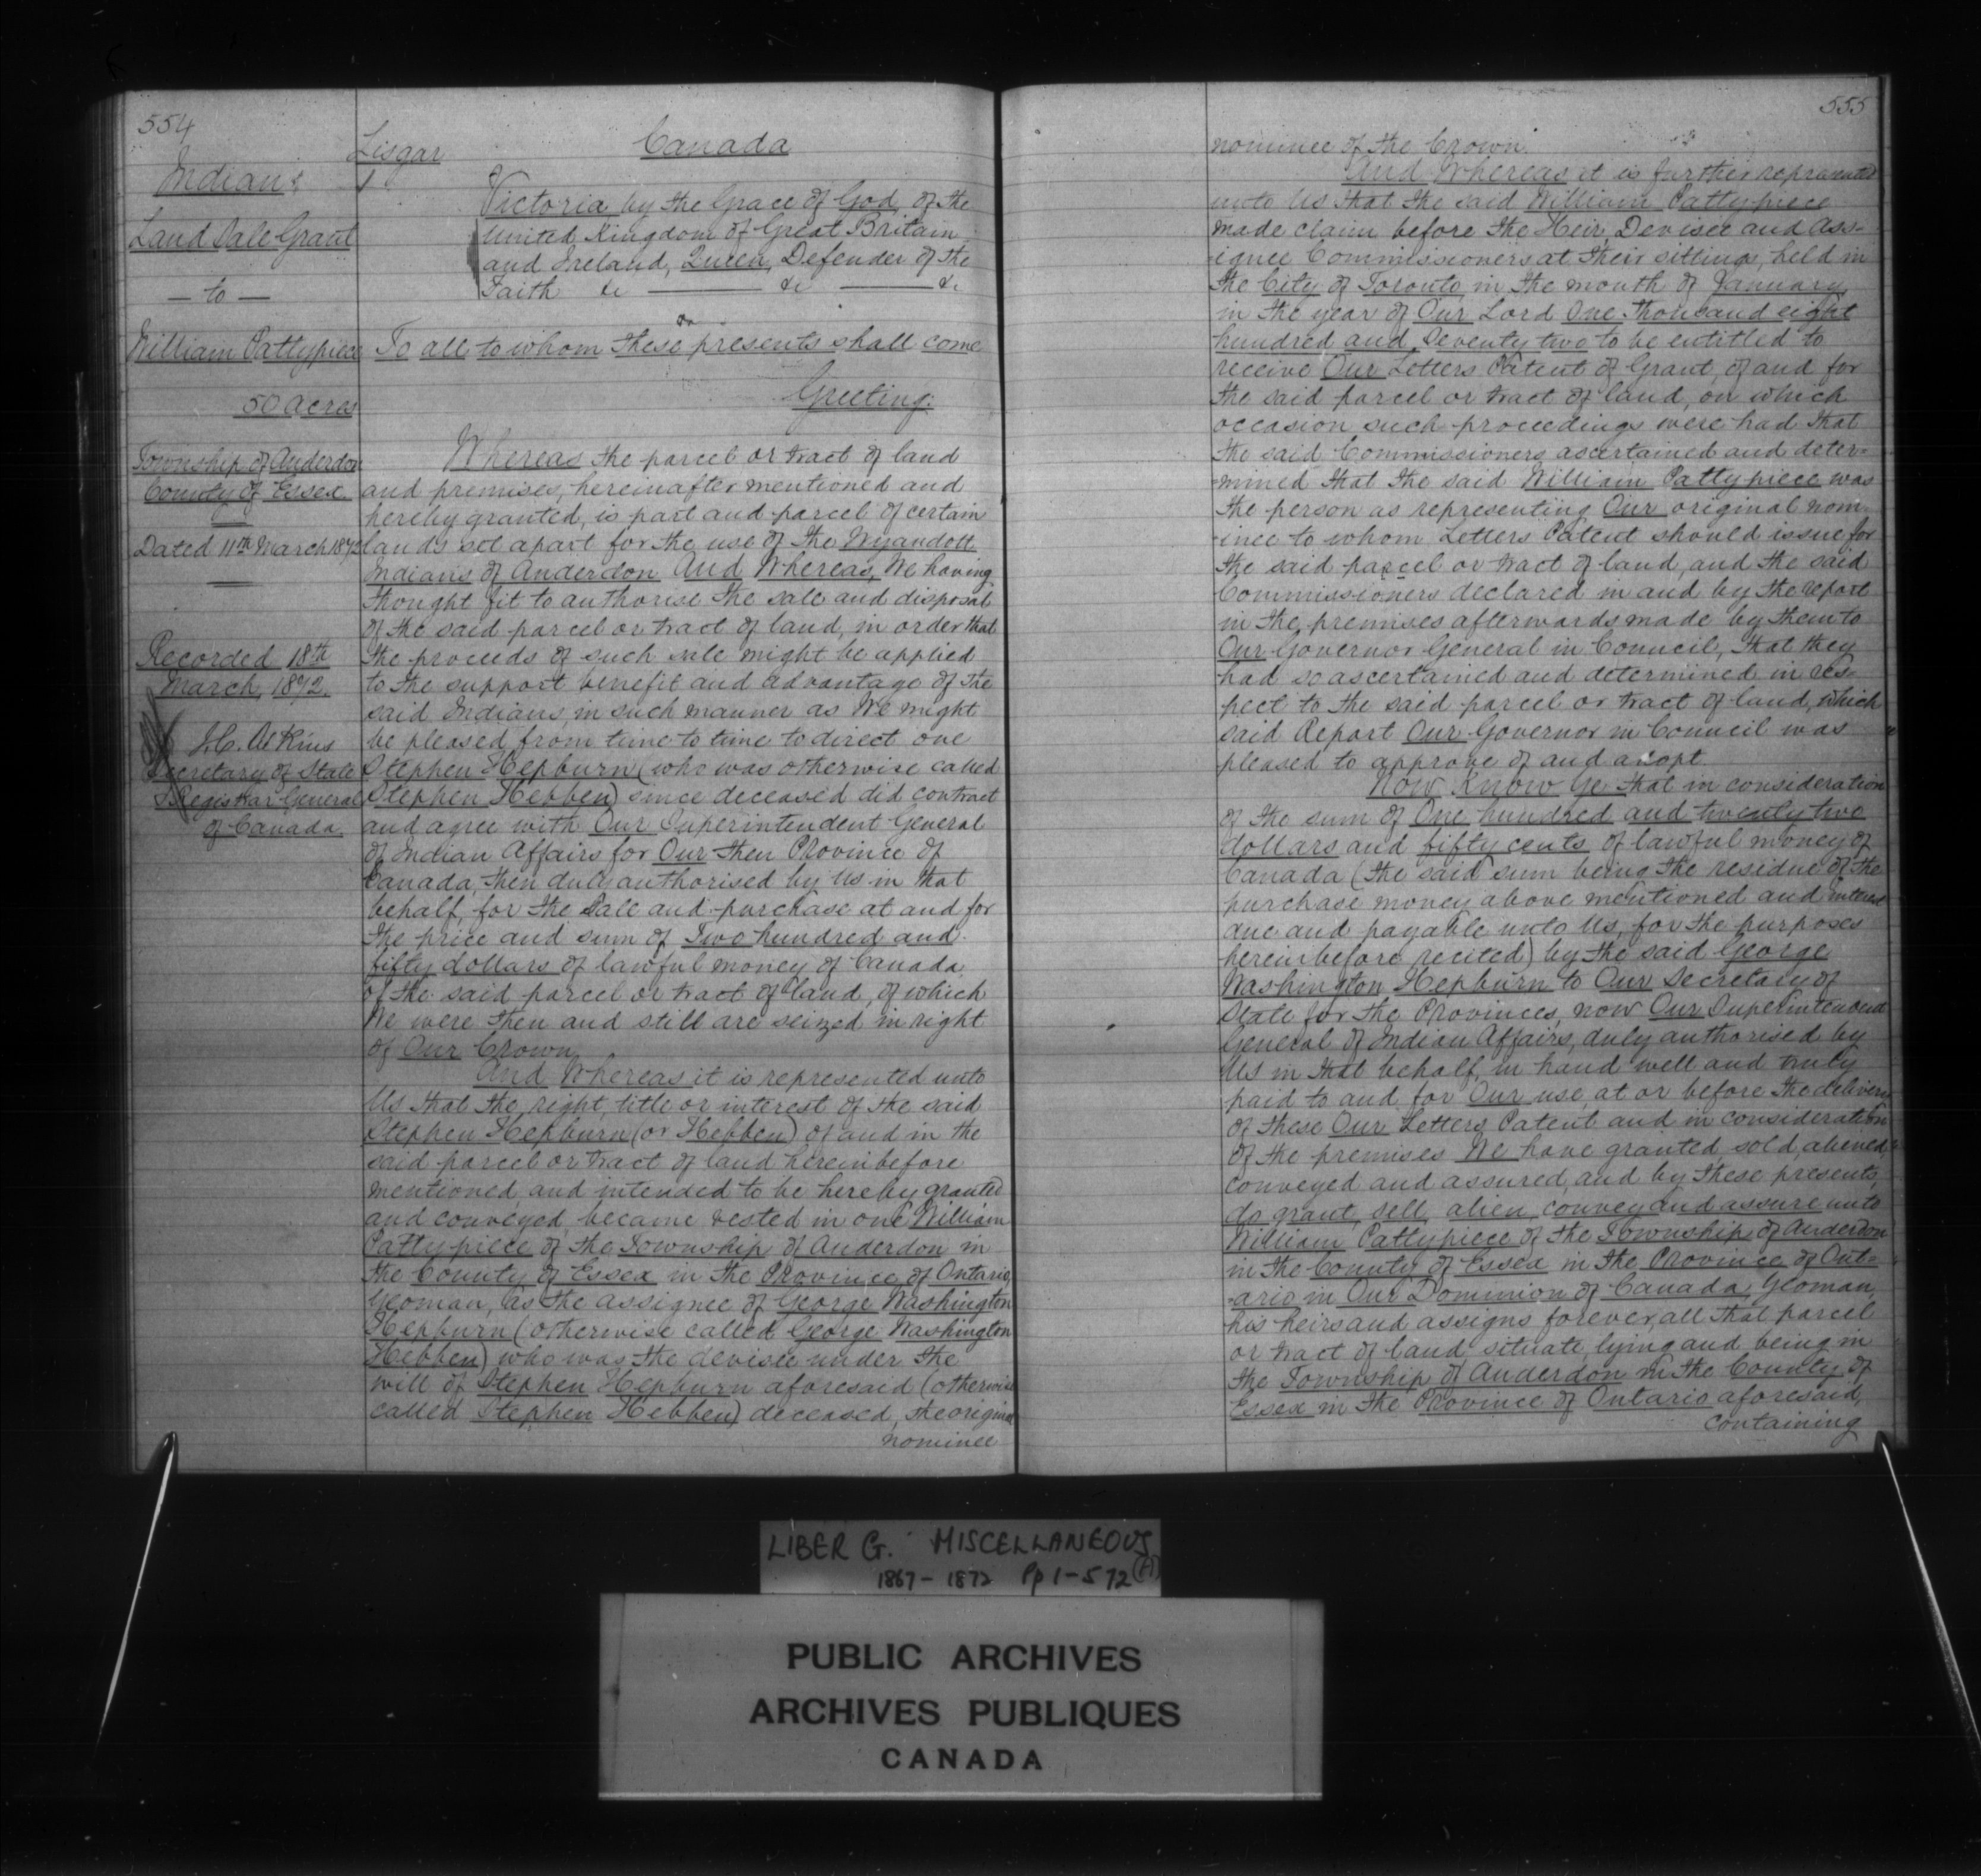 554
Indians
Land Sale Grant
— to —
William Pattypiece
50 acres
Township of Anderdon
County of Essex
Dated 11th March 1872
Recorded 18th
March, 1872.
J.C. Aikins
Secretary of State
& Registrar General
of Canada.
Lisgar
Canada
Victoria by the Grace of God, of the
United Kingdom of Great Britain
and Ireland, Queen, Defender of the
Faith &c — &c — &c
To all to whom these presents shall come
Greeting:
Whereas the parcel or tract of land
and premises, hereinafter mentioned and
hereby granted, is part and parcel of certain
lands set apart for the use of the Wyandott
Indians of Anderdon And Whereas, We having
thought fit to authorise the sale and disposal
of the said parcel or tract of land, in order that
the proceeds of such sale might be applied
to the support benefit and advantage of the
said Indians, in such manner as We might
be pleased from time to time to direct one
Stephen Hepburn (who was otherwise called
Stephen Hebben) since deceased did contract
and agree with Our Superintendent General
of Indian Affairs for Our then Province of
Canada, then duly authorised by Us in that
behalf, for the Sale and purchase at and for
the price and sum of Two hundred and
fifty dollars of lawful money of Canada,
of the said parcel or tract of land, of which
We were then and still are seized in right
of Our Crown.
And Whereas it is represented unto
Us that the right, title or interest of the said
Stephen Hepburn (or Hebben) of and in the
said parcel or tract of land hereinbefore
mentioned and intended to be hereby granted
and conveyed, became vested in one William
Pattypiece of the Township of Anderdon in
the County of Essex in the Province of Ontario,
Yeoman, as the assignee of George Washington
Hepburn (otherwise called George Washington
Hebben) who was the devisee under the
will of Stephen Hepburn aforesaid (otherwise
called Stephen Hebben) deceased, the original
nominee
555
nominee of the Crown.
And Whereas it is further represented
unto Us that the said William Pattypiece
made claim before the Heir, Devisee and Ass-
-ignee Commissioners at their sittings, held in
the City of Toronto, in the month of January,
in the year of Our Lord One thousand eight
hundred and Seventy two to be entitled to
receive Our Letters Patent of Grant, of and for
the said parcel or tract of land, on which
occasion such proceedings were had that
the said Commissioners ascertained and deter-
-mined that the said William Pattypiece was
the person as representing Our original nom-
-inee to whom Letters Patent should issue for
the said parcel or tract of land, and the said
Commissioners declared in and by the report
in the premises afterwards made by them to
Our Governor General in Council, that they
had so ascertained and determined in res-
pect to the said parcel or tract of land, which
said Report Our Governor in Council was
pleased to approve of and adopt.
Now Know Ye that in consideration
of the sum of One hundred and twenty two
dollars and fifty cents of lawful money of
Canada (the said sum being the residue of the
purchase money above mentioned and interest
due and payable unto Us, for the purposes
hereinbefore recited) by the said George
Washington Hepburn to Our Secretary of
State for the Provinces, now Our Superintendent
General of Indian Affairs, duly authorised by
Us in that behalf, in hand well and truly
paid to and for Our use, at or before the delivery
of these Our Letters Patent and in consideration
of the premises We have granted sold, aliened,
conveyed and assured, and by these presents,
do grant, sell, alien, convey and assure unto
William Pattypiece of the Township of Anderdon
in the County of Essex in the Province of Ont-
-ario in Our Dominion of Canada, Yeoman,
his heirs and assigns forever, all that parcel
or tract of land situate, lying and being in
the Township of Anderdon in the County of
Essex in the Province of Ontario aforesaid,
containing
LIBER G. MISCELLANEOUS
1867 - 1872 Pp 1 - 572 (A)
PUBLIC ARCHIVES
ARCHIVES PUBLIQUES
CANADA